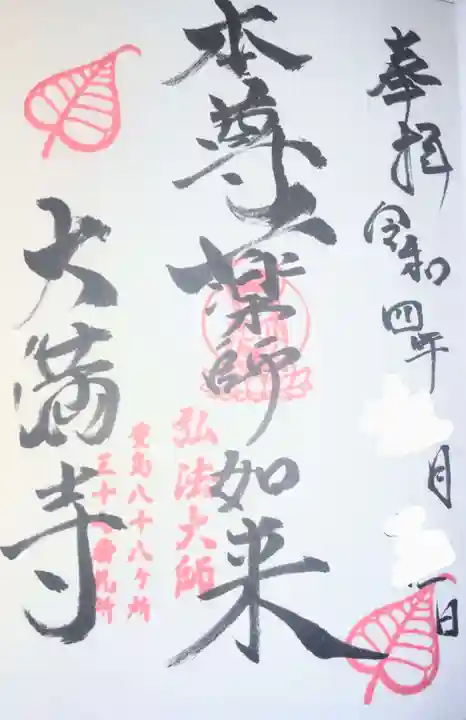 奉拝
令和四年 月 日
本尊 薬師如来
弘法大師
豊島八十八ヶ所
三十 番札所
大満寺